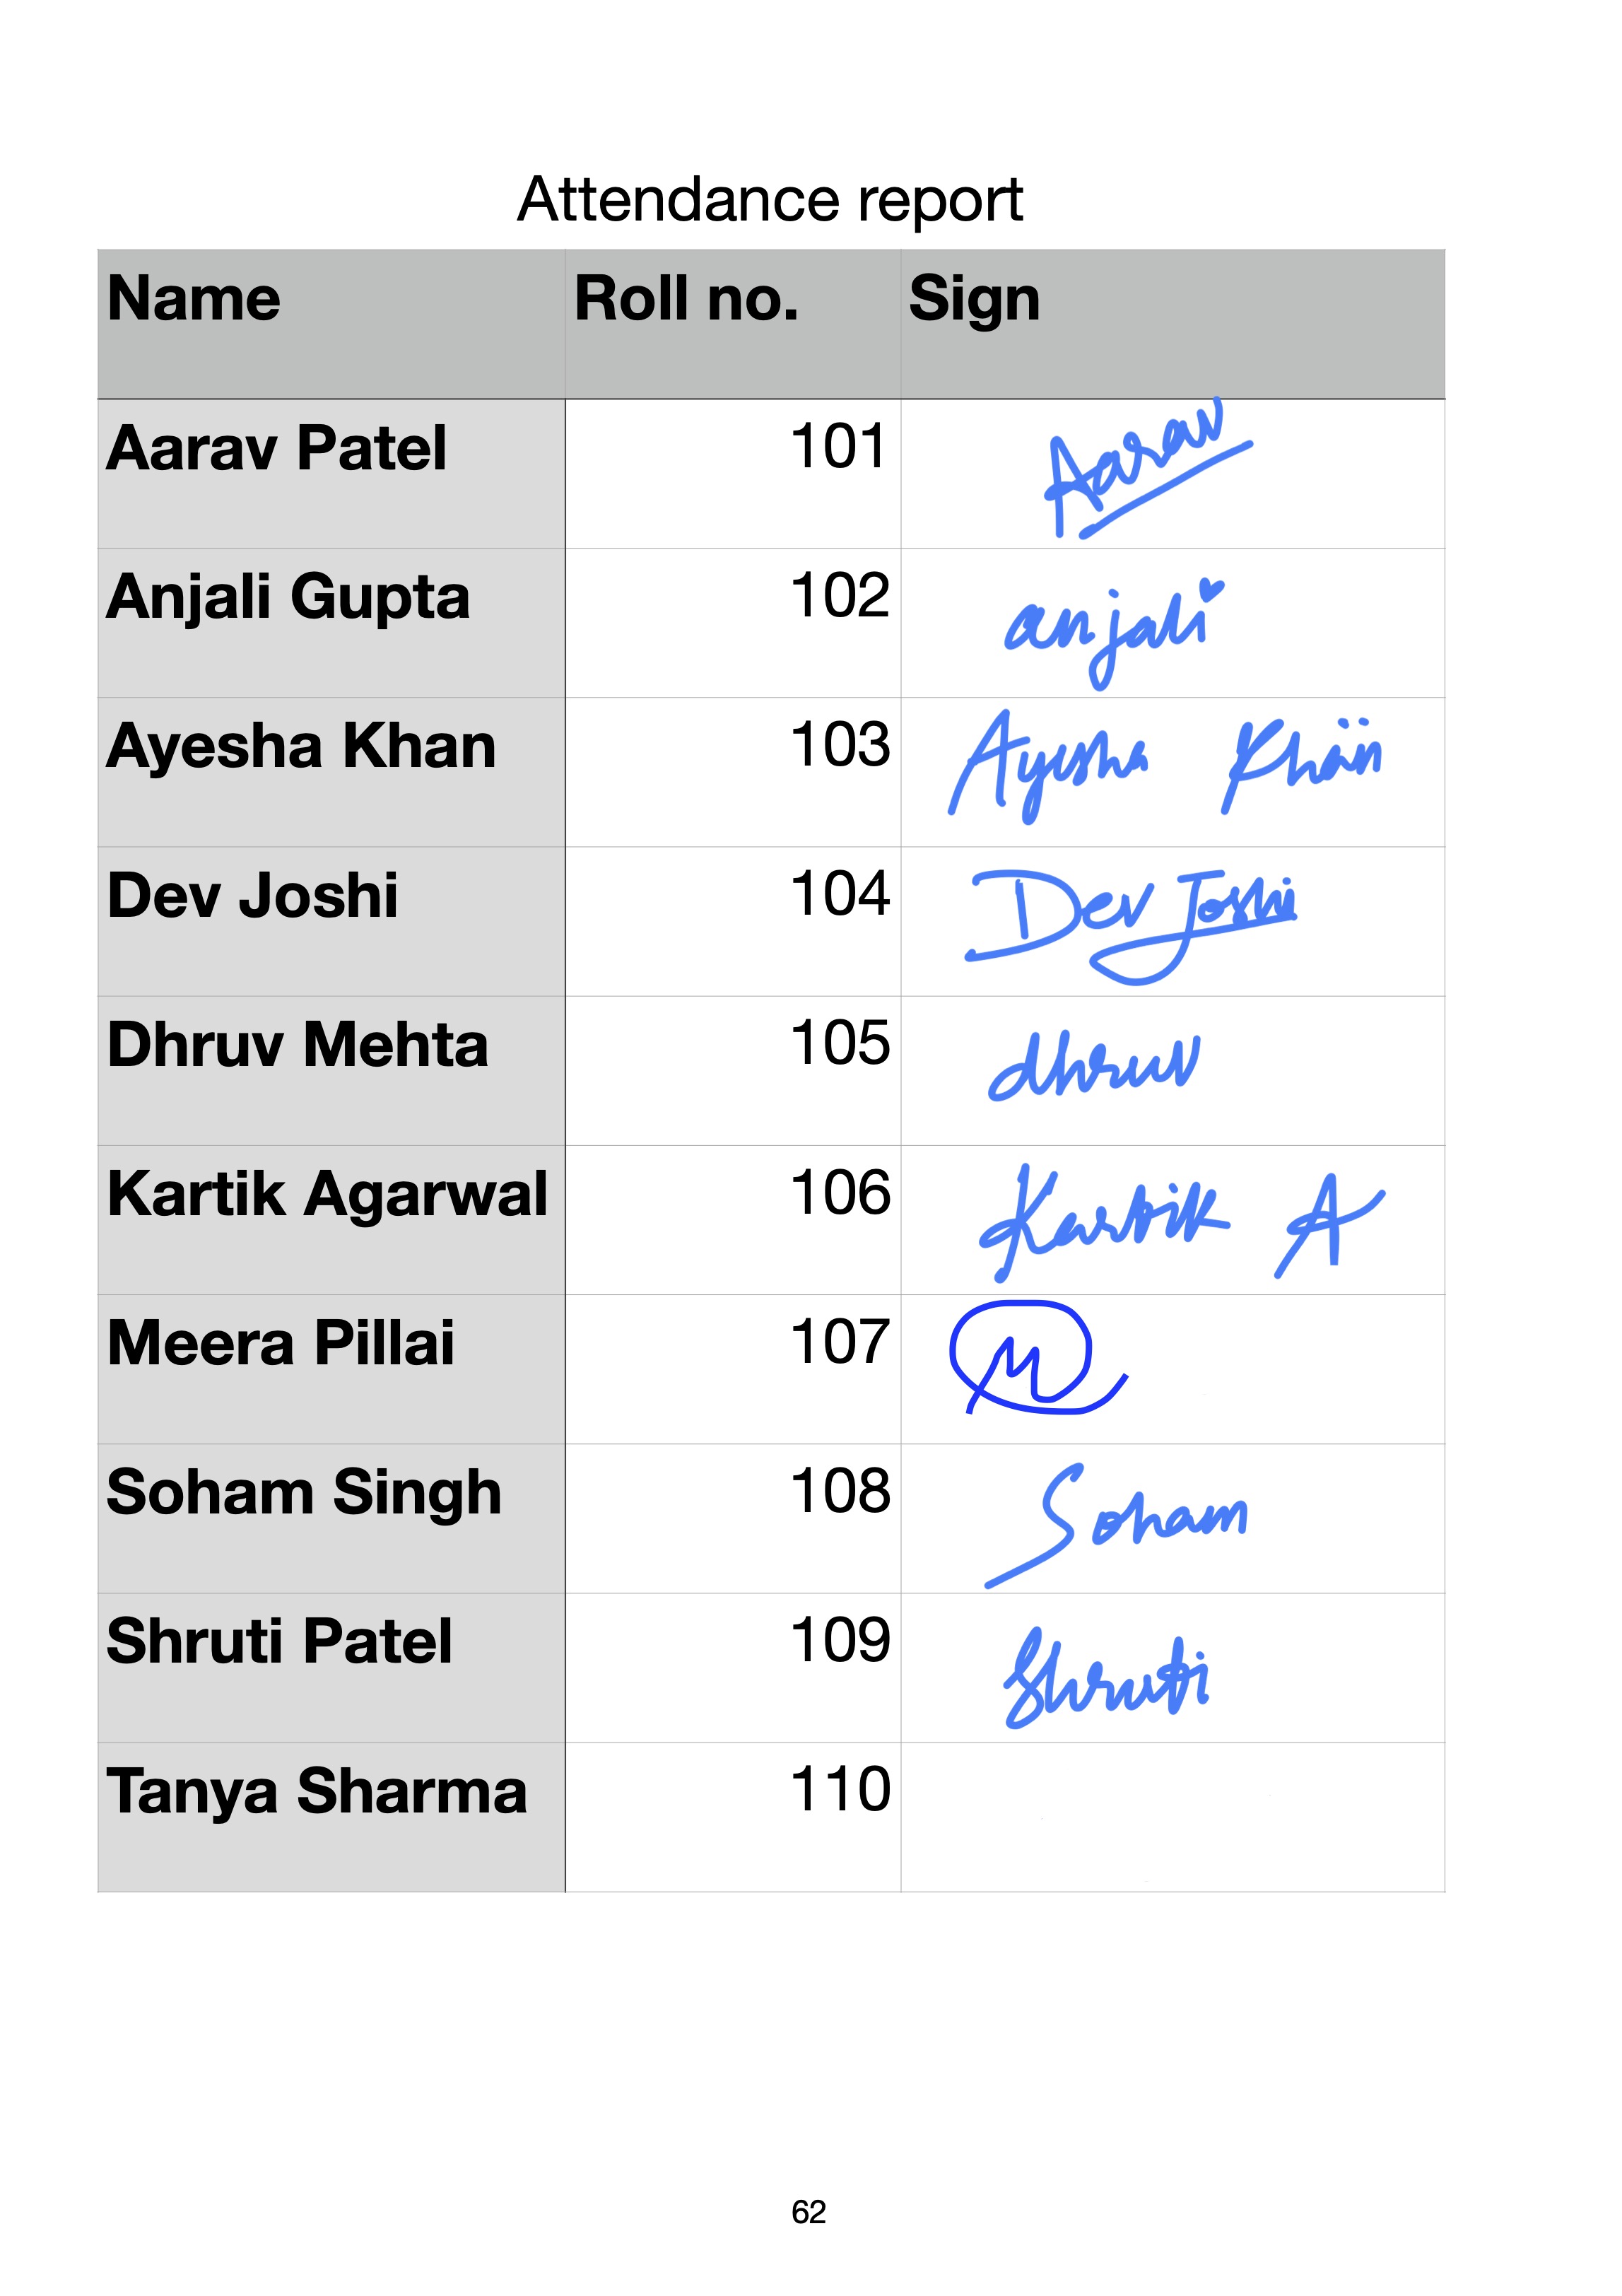 Attendance report
Name Roll no. Sign
Aarav Patel 101 Aarav
Anjali Gupta 102 anjali
Ayesha Khan 103 Ayesha Khan
Dev Joshi 104 Dev Joshi
Dhruv Mehta 105 dhruv
Kartik Agarwal 106 Kartik A
Meera Pillai 107 M
Soham Singh 108 Soham
Shruti Patel 109 Shruti
Tanya Sharma 110
62